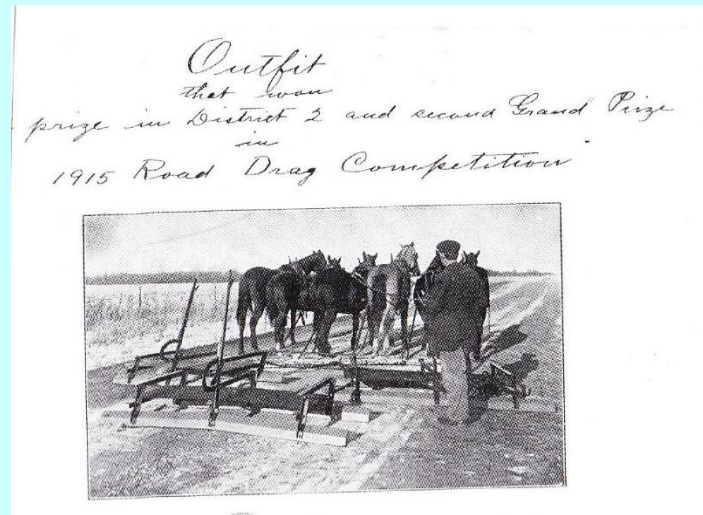 Outfit
that won
prize in District 2 and second Grand Prize
in
1915 Road Drag Competition